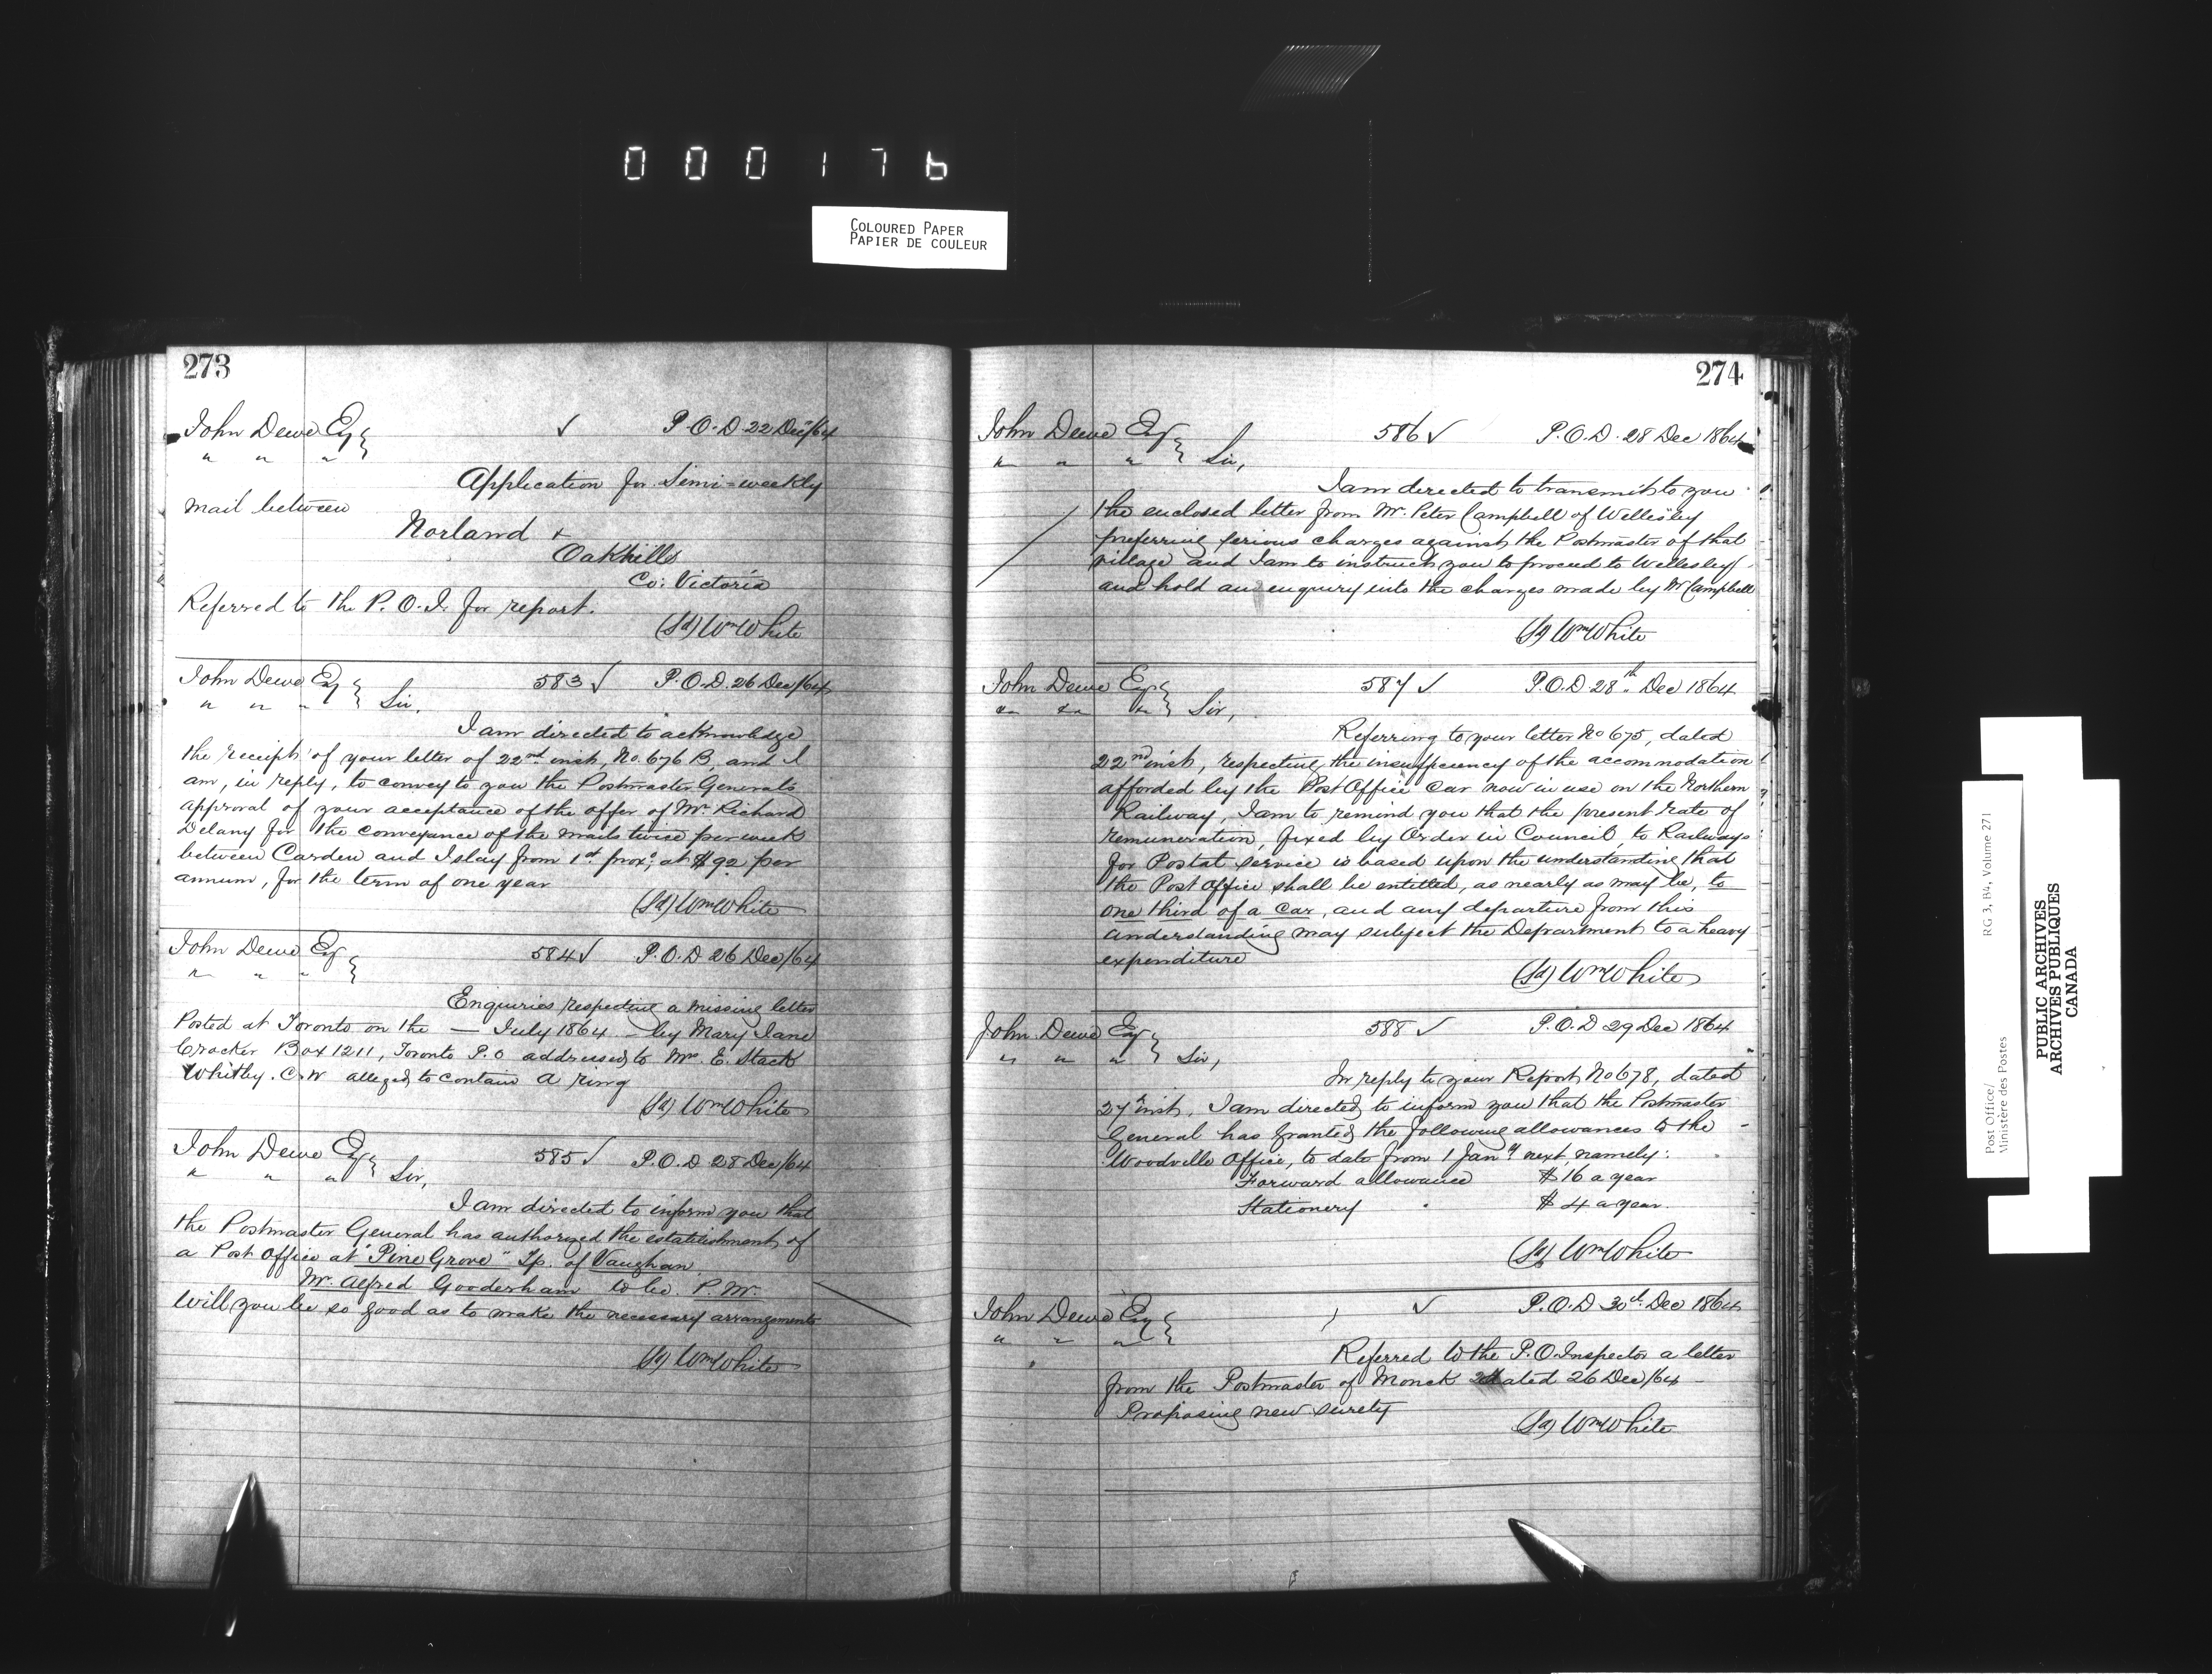 000176
COLOURED PAPER
PAPIER DE COULEUR
273
John Dewe Esq ✓ P.O.D. 22 Decr/64
" " "
Application for Semi-weekly
mail between
Norland &
Oakhills
Co: Victoria
Referred to the P.O.I. for report.
(Sd) Wm White
John Dewe Esq 583 ✓ P.O.D. 26 Dec/64
" " " Sir,
I am directed to acknowledge
the receipt of your letter of 22nd inst, No. 676 B, and I
am, in reply, to convey to you the Postmaster Generals
approval of your acceptance of the offer of Mr. Richard
Delany for the conveyance of the mails twice per week
between Carden and Islay from 1st proxo, at $92 per
annum, for the term of one year
(Sd) Wm White
John Dewe Esq 584 ✓ P.O.D 26 Dec/64
" " "
Enquiries respecting a missing letter
Posted at Toronto on the — July 1864 — by Mary Jane
Crocker Box 1211, Toronto P.O addressed to Mrs. E. Stack
Whitby. C.W alleged to contain a ring
(Sd) Wm White
John Dewe Esq 585 ✓ P.O.D 28 Dec/64
" " " Sir,
I am directed to inform you that
the Postmaster General has authorized the establishment of
a Post Office at "Pine Grove" Tp. of Vaughan.
Mr. Alfred Gooderham to be P.M.
Will you be so good as to make the necessary arrangements
(Sd) Wm White
274
John Dewe Esq 586 ✓ P.O.D. 28 Dec 1864
" " " Sir,
I am directed to transmit to you
the enclosed letter from Mr. Peter Campbell of Wellesley
preferring serious charges against the Postmaster of that
village and I am to instruct you to proceed to Wellesley
and hold an enquiry into the charges made by Mr Campbell
(Sd) Wm White
John Dewe Esq 587 ✓ P.O.D. 28th Dec 1864
" " " Sir,
Referring to your letter No 675, dated
22nd inst, respecting the insufficiency of the accommodation
afforded by the Post Office Car now in use on the Northern
Railway, I am to remind you that the present rate of
remuneration, fixed by Order in Council, to Railways
for Postal service is based upon the understanding that
the Post Office shall be entitled, as nearly as may be, to
one third of a car, and any departure from this
understanding may subject the Department to a heavy
expenditure
(Sd) Wm White
John Dewe Esq 588 ✓ P.O.D 29 Dec 1864
" " " Sir,
In reply to your Report No 678, dated
27th inst, I am directed to inform you that the Postmaster
General has granted the following allowances to the
Woodville Office, to date from 1 Jany next, namely:
Forward allowance $16 a year
Stationery " $4 a year.
(Sd) Wm White
John Dewe Esq ✓ P.O.D 30th Dec 1864
" " "
Referred to the P.O. Inspector a letter
from the Postmaster of Monck dated 26 Dec/64 -
Proposing new surety
(Sd) Wm White
Post Office/ RG 3, B4, Volume 271
Ministère des Postes
PUBLIC ARCHIVES
ARCHIVES PUBLIQUES
CANADA